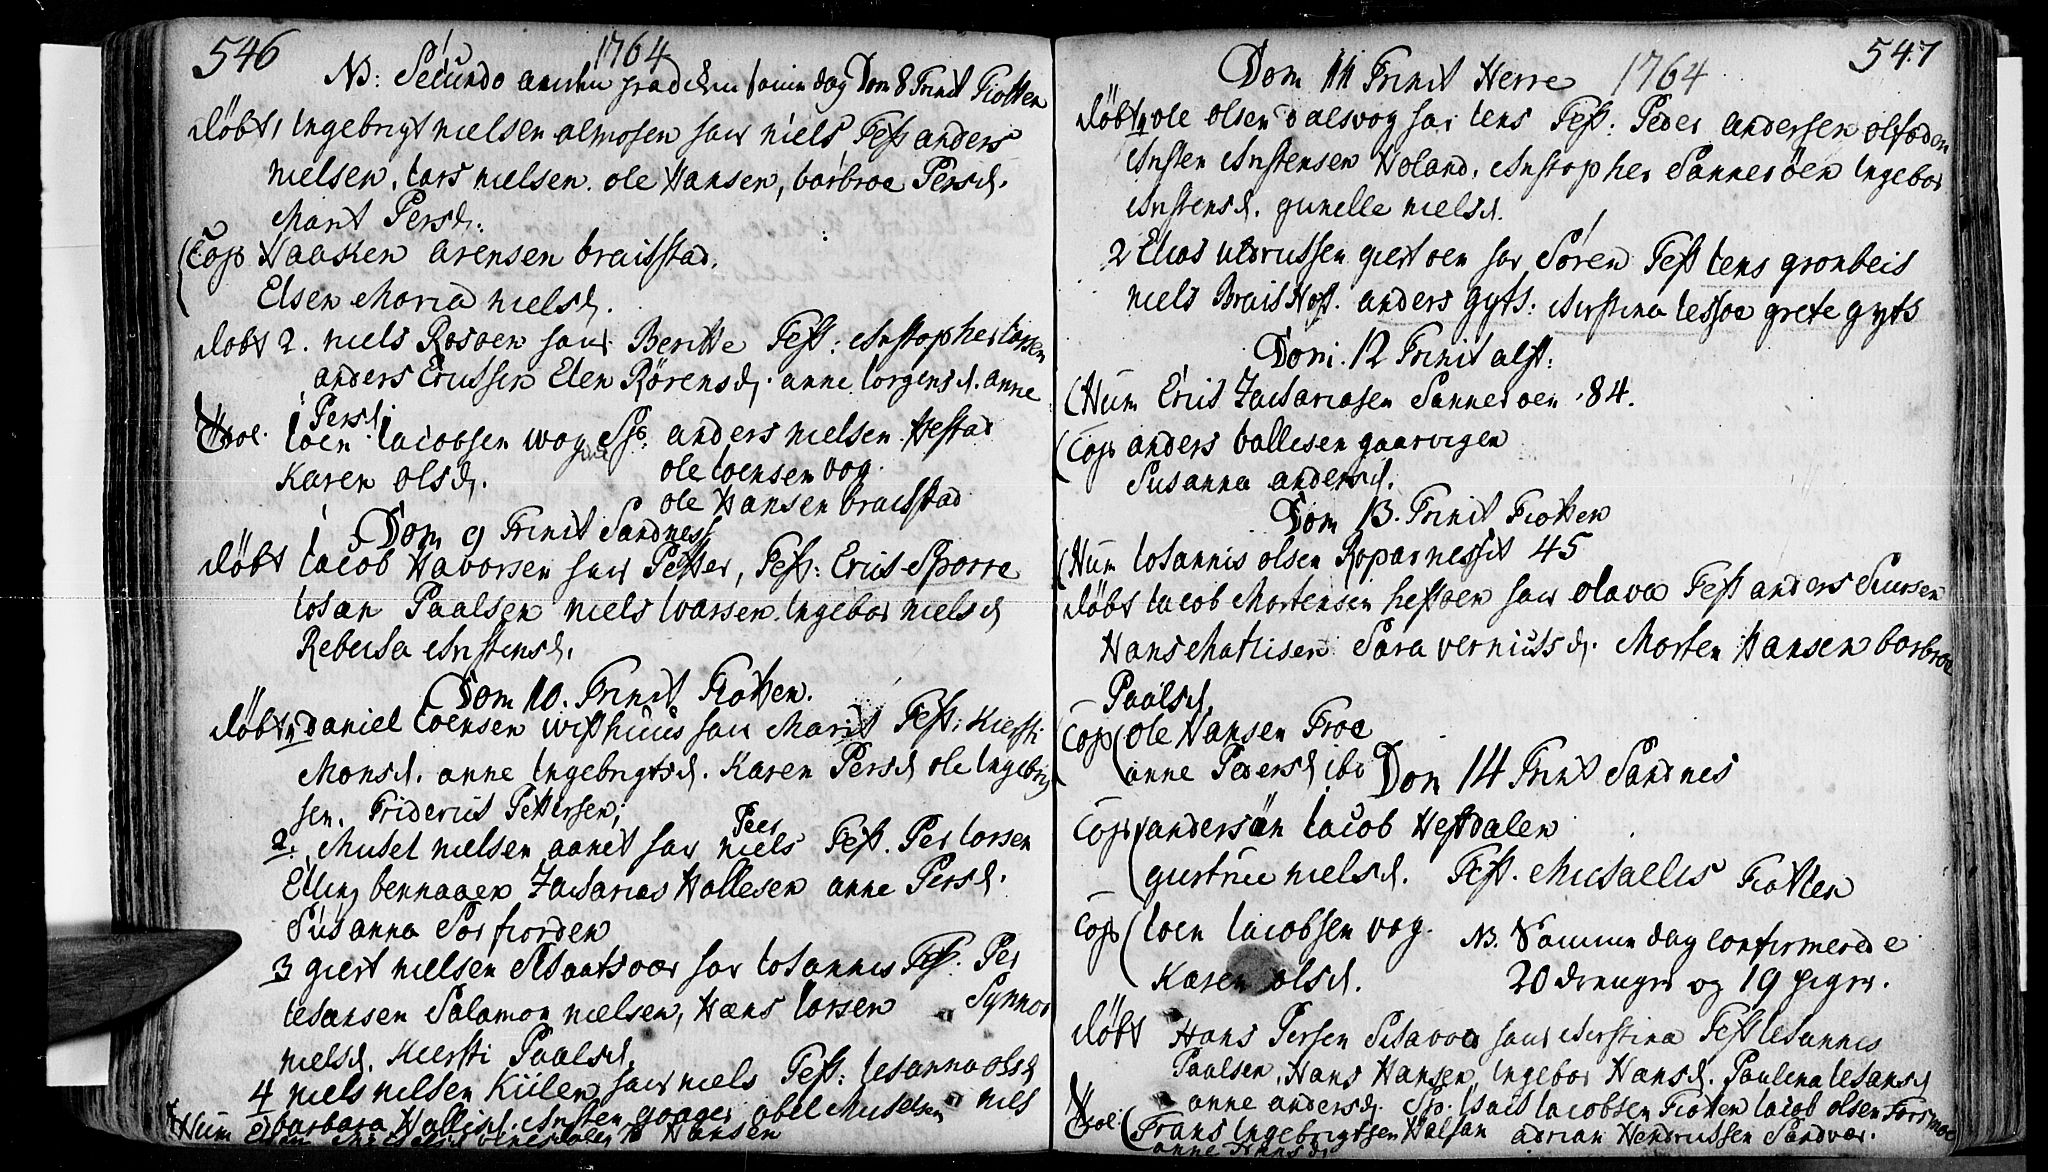 546
1764
NB: Secundo samme dag Dom 8 Trinit Flotten
døbt 1 Ingebrigt nielsen almosen hans niels Test anders
nielsen, lars nielsen. ole Hansen, barbroe Persd.
Marit Persd.
Cop Haaken arensen braisstad.
Elsen Maria nielsd.
døbt 2. niels Rosøen hans Beritte Test: Christopher larsen
anders Erichsen Elen Rørensd. anne lorgensd. anne
Persd
Troel. loen lacobsen wog Sp. anders nielsen Hestad
Karen olsd. ole loensen vog.
ole Hansen braisstad
Dom 9 Trinit Sandness
døbt lacob Havorsen hans Petter, Test: Erich Sporre
lohan Paalsen niels lvarsen. Ingebor nielsd
Rebecha Christensd.
Dom 10. Trinit Flotten.
døbt 1 Daniel loensen wisthuus hans Marit Test: Kiersti
Monsd. anne Ingebrigtsd. Karen Persd ole Ingebrigt
sen. Friderich Pettersen;
2. Michel nielsen aanet hans niels Peer Test. Per larsen
Elling bennaaen Zacharias Hallesen anne Persd.
Susanna Sorfiorden
3 giert nielsen hans lohannis Test. Per
lohansen Salamon nielsen, Hans larsen Synnov
nielsd. Kiersti Paalsd.
4 niels nilsen Kiilen hans niels Test: lohanna olsd
barbara Hallisd. Christen gaager abel Michelsen niels
Hum Hansen
547
Dom 11 Trinit Herre 1764
døbt 1 ole olsen dalsvog hans lens Test: Peder andersen olfoden
Christen Christensen Holand, Christopher Sannerøen Ingebor
Christensd. gunelle nielsd.
2 Elias uldrichsen giertøen hans Søren Test lens gronbeis
niels Brais Host. anders gyts: Christina lessoe grete gyts
Dom. 12 Trinit alst:
Hum Erich Zachariasen Sannerøen 84.
Cop anders ballesen gaarvigen
Susanna andersd.
Dom 13. Trinit Flotten
Hum lohannis olsen Roparnesset 45
døbt lacob Mortensen hestøen hans olava Test anders Siursen
Hans Mathisen Sara vernichsd. Morten Hansen barbroe
Paalsd.
Cop ole Hansen Froe
anne Pedersd ibd
Dom 14 Trinit Sandnes
Cop andersøn lacob Hestdalen
giertrue nielsd. Fest. Michaelis Flotten
Cop loen lacobsen vog.
Karen olsd.
NB. Samme dag confirmerede
20 drenger og 19 piger.
døbt Hans Persen hans Christina Test lohannis
Paalsen, Hans Hansen, Ingebor Hansd. Paulina lohansd
anne andersd. Sp. lsach lacobsen Flotten lacob olsen Forsmoe
Troel. Frans Ingebrigtsen Halsan adrian Hendrichsen Sandvær.
anne Hansd